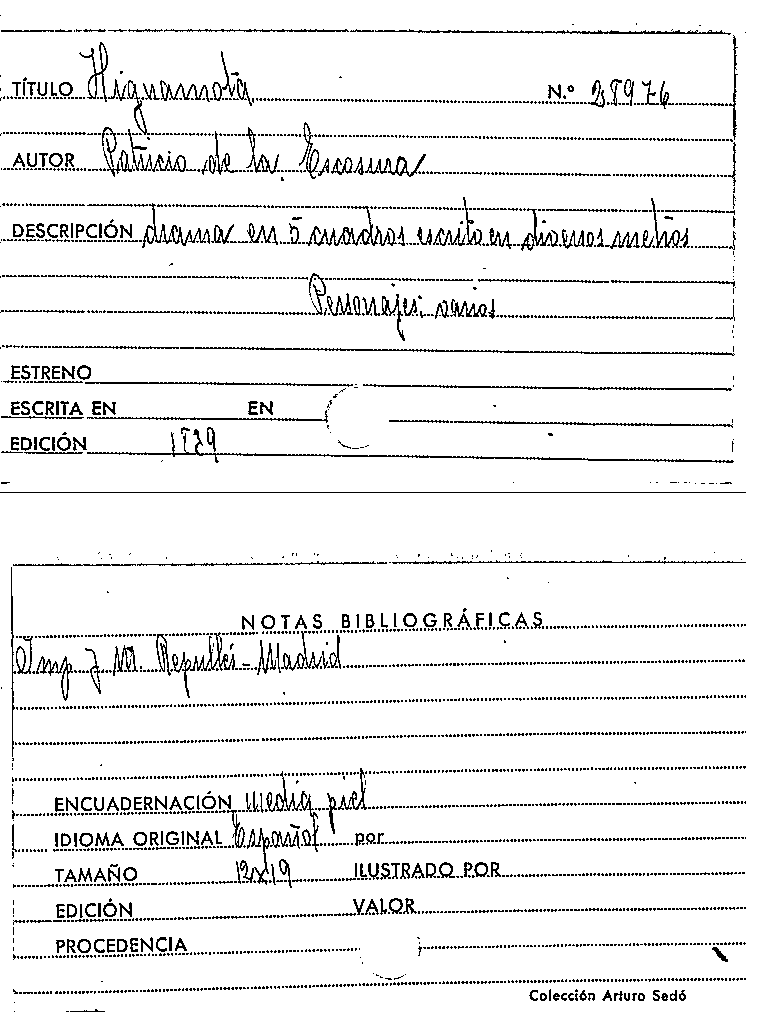 TÍTULO Higuamota N.º 28976
AUTOR Patricio de la Escosura
DESCRIPCIÓN drama en 5 cuadros escrito en diversos metros
Personajes: varios
ESTRENO
ESCRITA EN EN
EDICIÓN 1839
NOTAS BIBLIOGRÁFICAS
Imp. J. M. Repullés - Madrid
ENCUADERNACIÓN media piel
IDIOMA ORIGINAL Español por
TAMAÑO 12x19 ILUSTRADO POR
EDICIÓN VALOR
PROCEDENCIA
Colección Arturo Sedó